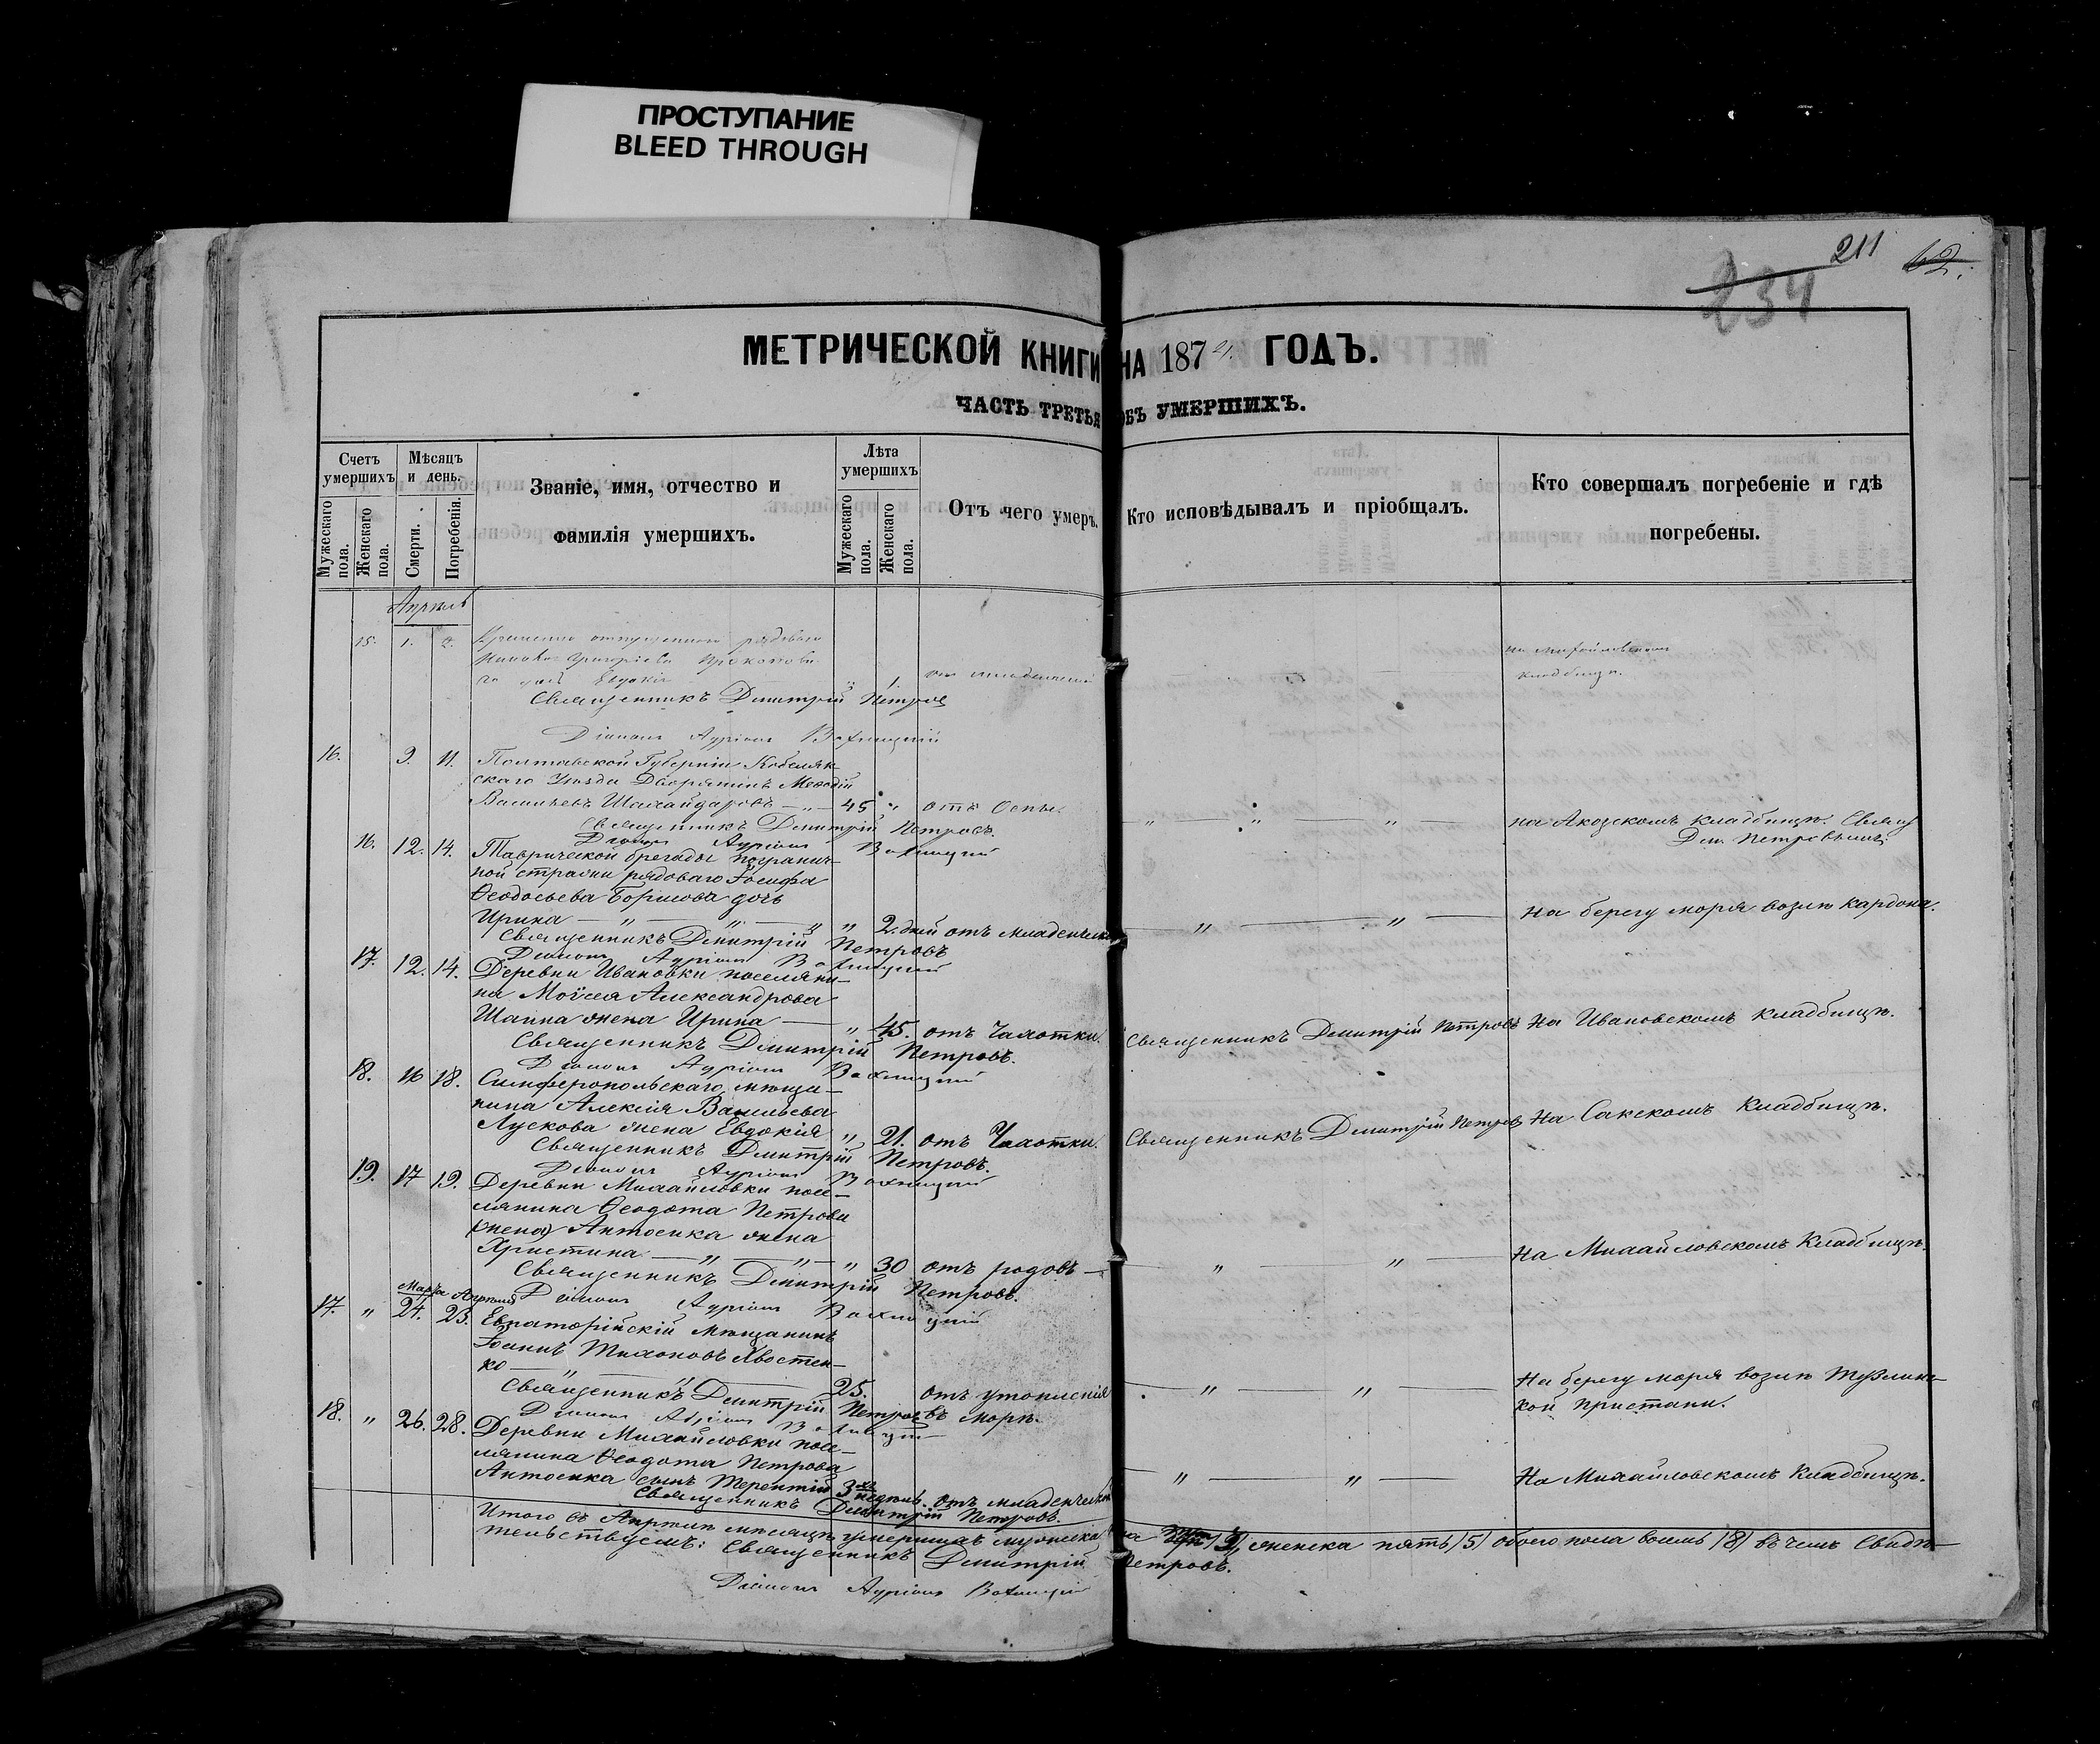 ПРОСТУПАНИЕ
BLEED THROUGH
211
62.
234
МЕТРИЧЕСКОЙ КНИГИ НА 187 ГОДЪ.
ЧАСТЬ ТРЕТЬЯ ОБЪ УМЕРШИХЪ.
Счетъ умершихъ
Мужескаго пола.
Женскаго пола.
Мѣсяцъ и день.
Смерти.
Погребенія.
Званіе, имя, отчество и
фамилія умершихъ.
Лѣта умершихъ
Мужескаго пола.
Женскаго пола.
Отъ чего умеръ.
Кто исповѣдывалъ и пріобщалъ.
Кто совершалъ погребеніе и гдѣ
погребены.
Апрѣль
15. 1. 2. отпущеннаго рядоваго
Григоріева
дочь Евдокія " 1. на Михайловскомъ
кладбищѣ.
Священникъ Димитрій Петровъ
Діаконъ
16. 9. 11. Полтавской Губерніи Кобеляк-
скаго Уѣзда Дворянинъ Меѳодій
Васильевъ — " — 45 " отъ Оспы. — " — " — " — на кладбищѣ. Свящ
Дим. Петровымъ
Священникъ Димитрій Петровъ.
Діаконъ
16. 12. 14. Таврической бригады погранич-
ной стражи рядоваго Іосифа
Ѳеодосьева дочь
Ирина — " — " — " " 2. дней отъ младенческ — " — " — На берегу моря возлѣ кардона.
Священникъ Димитрій Петровъ
Діаконъ
17. 12. 14. Деревни Ивановки поселяни-
на Моѵсея Александрова
жена Ирина — " 45. отъ Чахотки. Священникъ Димитрій Петровъ На Ивановскомъ кладбищѣ.
Священникъ Димитрій Петровъ.
Діаконъ
18. 16 18. Симферопольскаго мѣща-
нина Алексія Васильева
Лускова жена Евдокія " 21. отъ Чахотки. Священникъ Димитрій Петровъ На Сакскомъ Кладбищѣ.
Священникъ Димитрій Петровъ.
Діаконъ
19. 17 19. Деревни Михайловки посе-
лянина Ѳеодота Петрова
(жена) Антосика жена
Христина — " — " — " 30 отъ родовъ — " — " — На Михайловскомъ Кладбищѣ.
Священникъ Димитрій Петровъ.
Діаконъ
Марта Апрѣля
17. " 24. 23. Евпаторійскій Мѣщанинъ
Іоаннъ Тихоновъ Хвостен-
ко — " — " — 25. отъ утопленія — " — " — На берегу моря возлѣ
въ морѣ. кой пристани.
Священникъ Димитрій Петровъ
Діаконъ
18. " 26. 28. Деревни Михайловки посе-
лянина Ѳеодота Петрова
Антосика сынъ Терентій 3 недѣль. отъ младенческой — " — " — На Михайловскомъ Кладбищѣ.
Священникъ Димитрій Петровъ.
Итого въ Апрѣлѣ мѣсяцѣ умершихъ мужеска три /3/, женска пять /5/ обоего пола восемь /8/ въ чемъ Свидѣ-
тельствуемъ: Священникъ Димитрій Петровъ.
Діаконъ